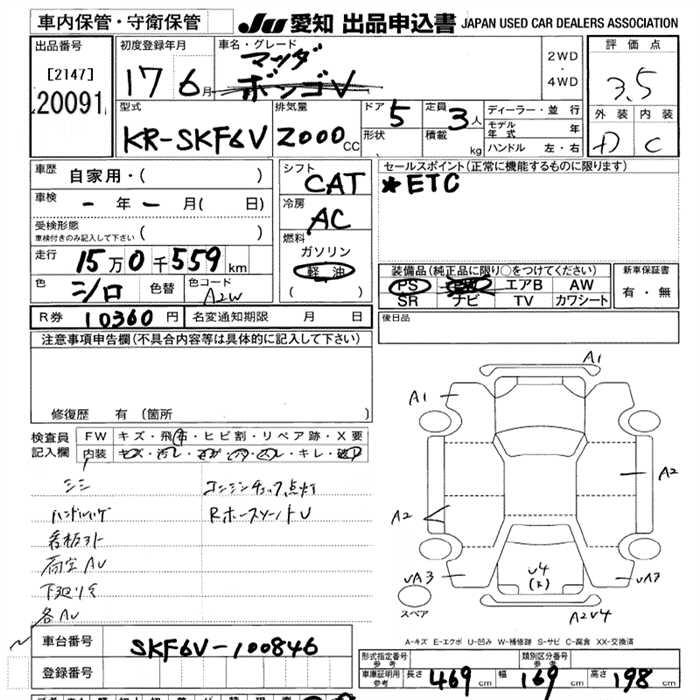 車内保管・守衛保管 JU 愛知 出品申込書 JAPAN USED CAR DEALERS ASSOCIATION
出品番号 [2147] 20091
初度登録年月 17 6月
車名・グレード マツダ ボンゴV
2WD ・ 4WD
評価点 3.5
外装 内装
D C
型式 KR-SKF6V
排気量 2000cc
ドア 5 形状
定員 3人 積載 kg
ディーラー・並行
モデル年式 年
ハンドル 左・右
車歴 自家用・( )
車検 - 年 - 月( 日)
受検形態 車検付きのみ記入して下さい ( )
走行 15万0千559km
色 シロ 色替 色コード A2W
シフト CAT
冷房 AC
燃料 ガソリン 軽油 ( )
セールスポイント(正常に機能するものに限ります)
*ETC
装備品(純正品に限り○をつけてください)
PS エアB AW
SR ナビ TV カワシート
新車保証書 有・無
R券 10360円 名変通知期限 月 日
後日品
注意事項申告欄(不具合内容等は具体的に記入して下さい)
修復歴 有(箇所 )
検査員記入欄
FW キズ・飛石・ヒビ割・リペア跡・X要
内装 キズ・汚レ・キレ
シミ エンジンチェック点灯
RホースシートU
看板アト
荷室AU
下廻りサ
各AU
A1
A1
A2
A2
UA3
U4
UA3
A2U4
スペア
A-キズ E-エクボ U-凹み W-補修跡 S-サビ C-腐食 XX-交換済
車台番号 SKF6V-100846
登録番号
型式指定番号 参考 類別区分番号 参考
車庫証明用 参考 長さ 469cm 幅 169cm 高さ 198cm